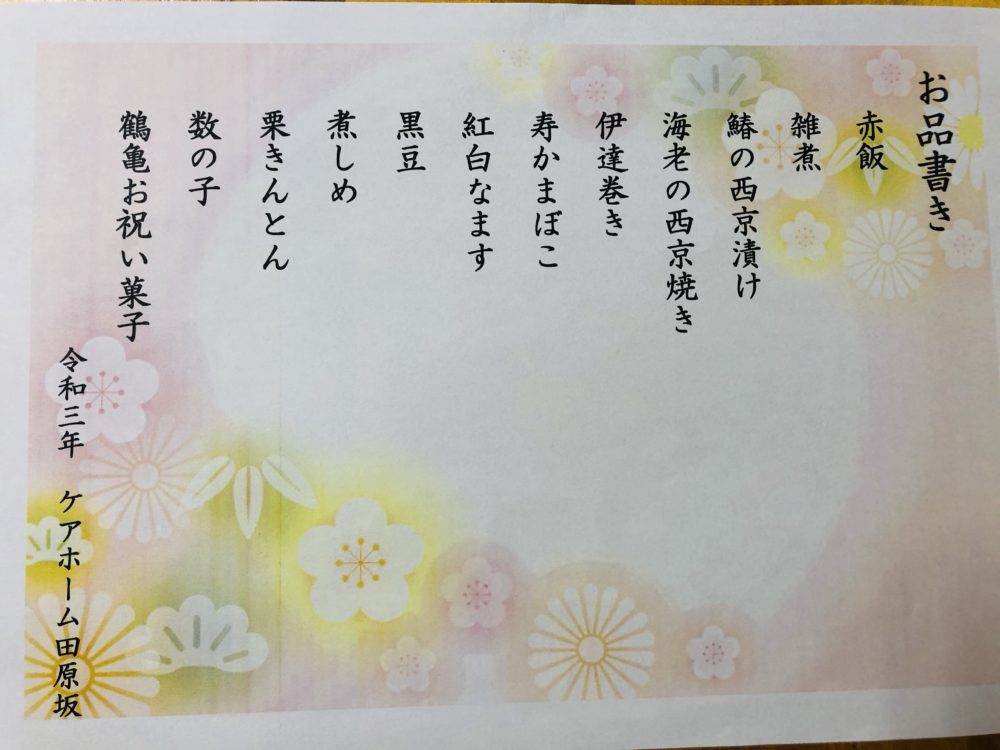 お品書き
赤飯
雑煮
鰆の西京漬け
海老の西京焼き
伊達巻き
寿かまぼこ
紅白なます
黒豆
煮しめ
栗きんとん
数の子
鶴亀お祝い菓子
令和三年　ケアホーム田原坂